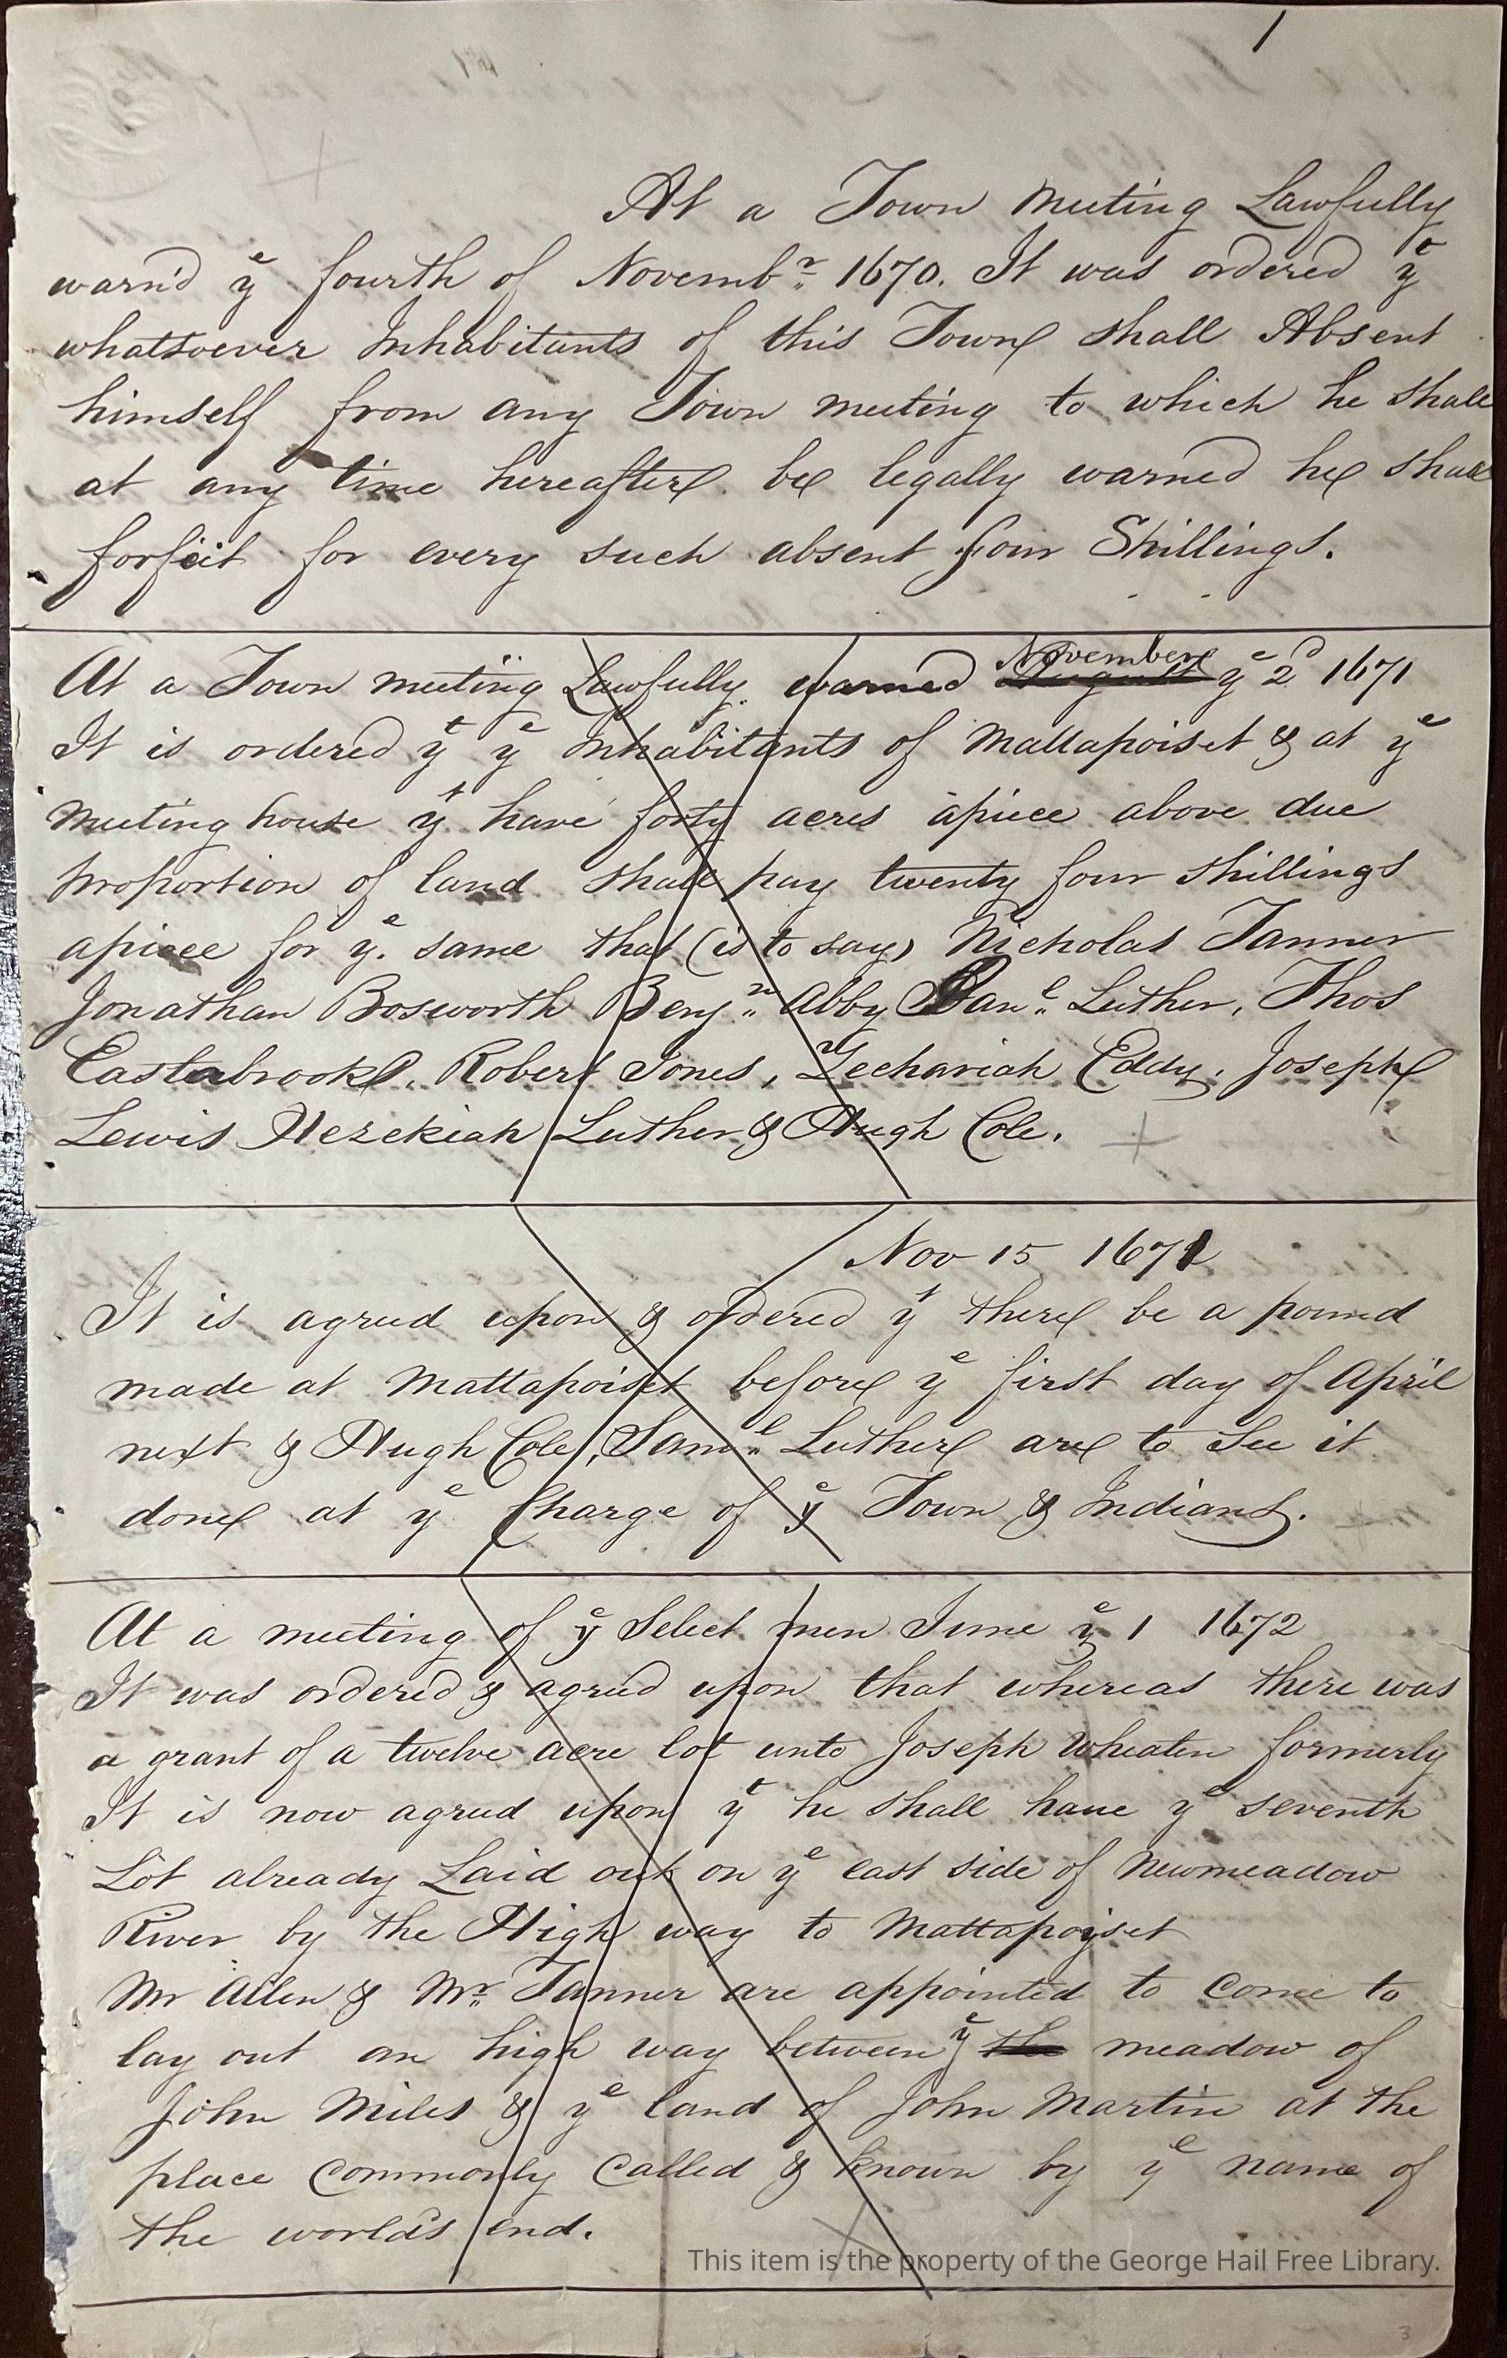 1
At a Town meeting Lawfully
warn'd yᵉ fourth of Novembʳ 1670. It was ordered yᵗ
whatsoever Inhabitants of this Town shall Absent
himself from any Town meeting to which he shall
at any time hereafter be legally warned he shall
forfeit for every such absent four Shillings.
At a Town meeting Lawfully warned November yᵉ 2ᵈ 1671
It is ordered yᵗ yᵉ Inhabitants of Mattapoiset & at yᵉ
meeting house yᵗ have forty acres apiece above due
proportion of land shall pay twenty four shillings
apiece for yᵉ same that (is to say) Nicholas Tanner
Jonathan Bosworth Benjⁿ Abby Danˡ Luther, Thos
Easterbrook, Robert Jones, Zechariah Eddy, Joseph
Lewis Hezekiah Luther & Hugh Cole.
Nov 15 1671
It is agreed upon & ordered yᵗ there be a pound
made at Mattapoiset before yᵉ first day of April
next & Hugh Cole, Samˡ Luther are to See it
done at yᵉ Charge of yᵉ Town & Indians.
At a meeting of yᵉ Select men June yᵉ 1 1672
It was ordered & agreed upon that whereas there was
a grant of a twelve acre lot unto Joseph Wheaten formerly
It is now agreed upon yᵗ he shall haue yᵉ seventh
Lot already Laid out on yᵉ east side of Newmeadow
River by the High way to Mattapoyset
Mr Allen & Mʳ Tanner are appointed to Come to
lay out an high way between yᵉ the meadow of
John Miles & yᵉ land of John Martin at the
place Commonly Called & known by yᵉ name of
the world's end.
This item is the property of the George Hail Free Library.
3